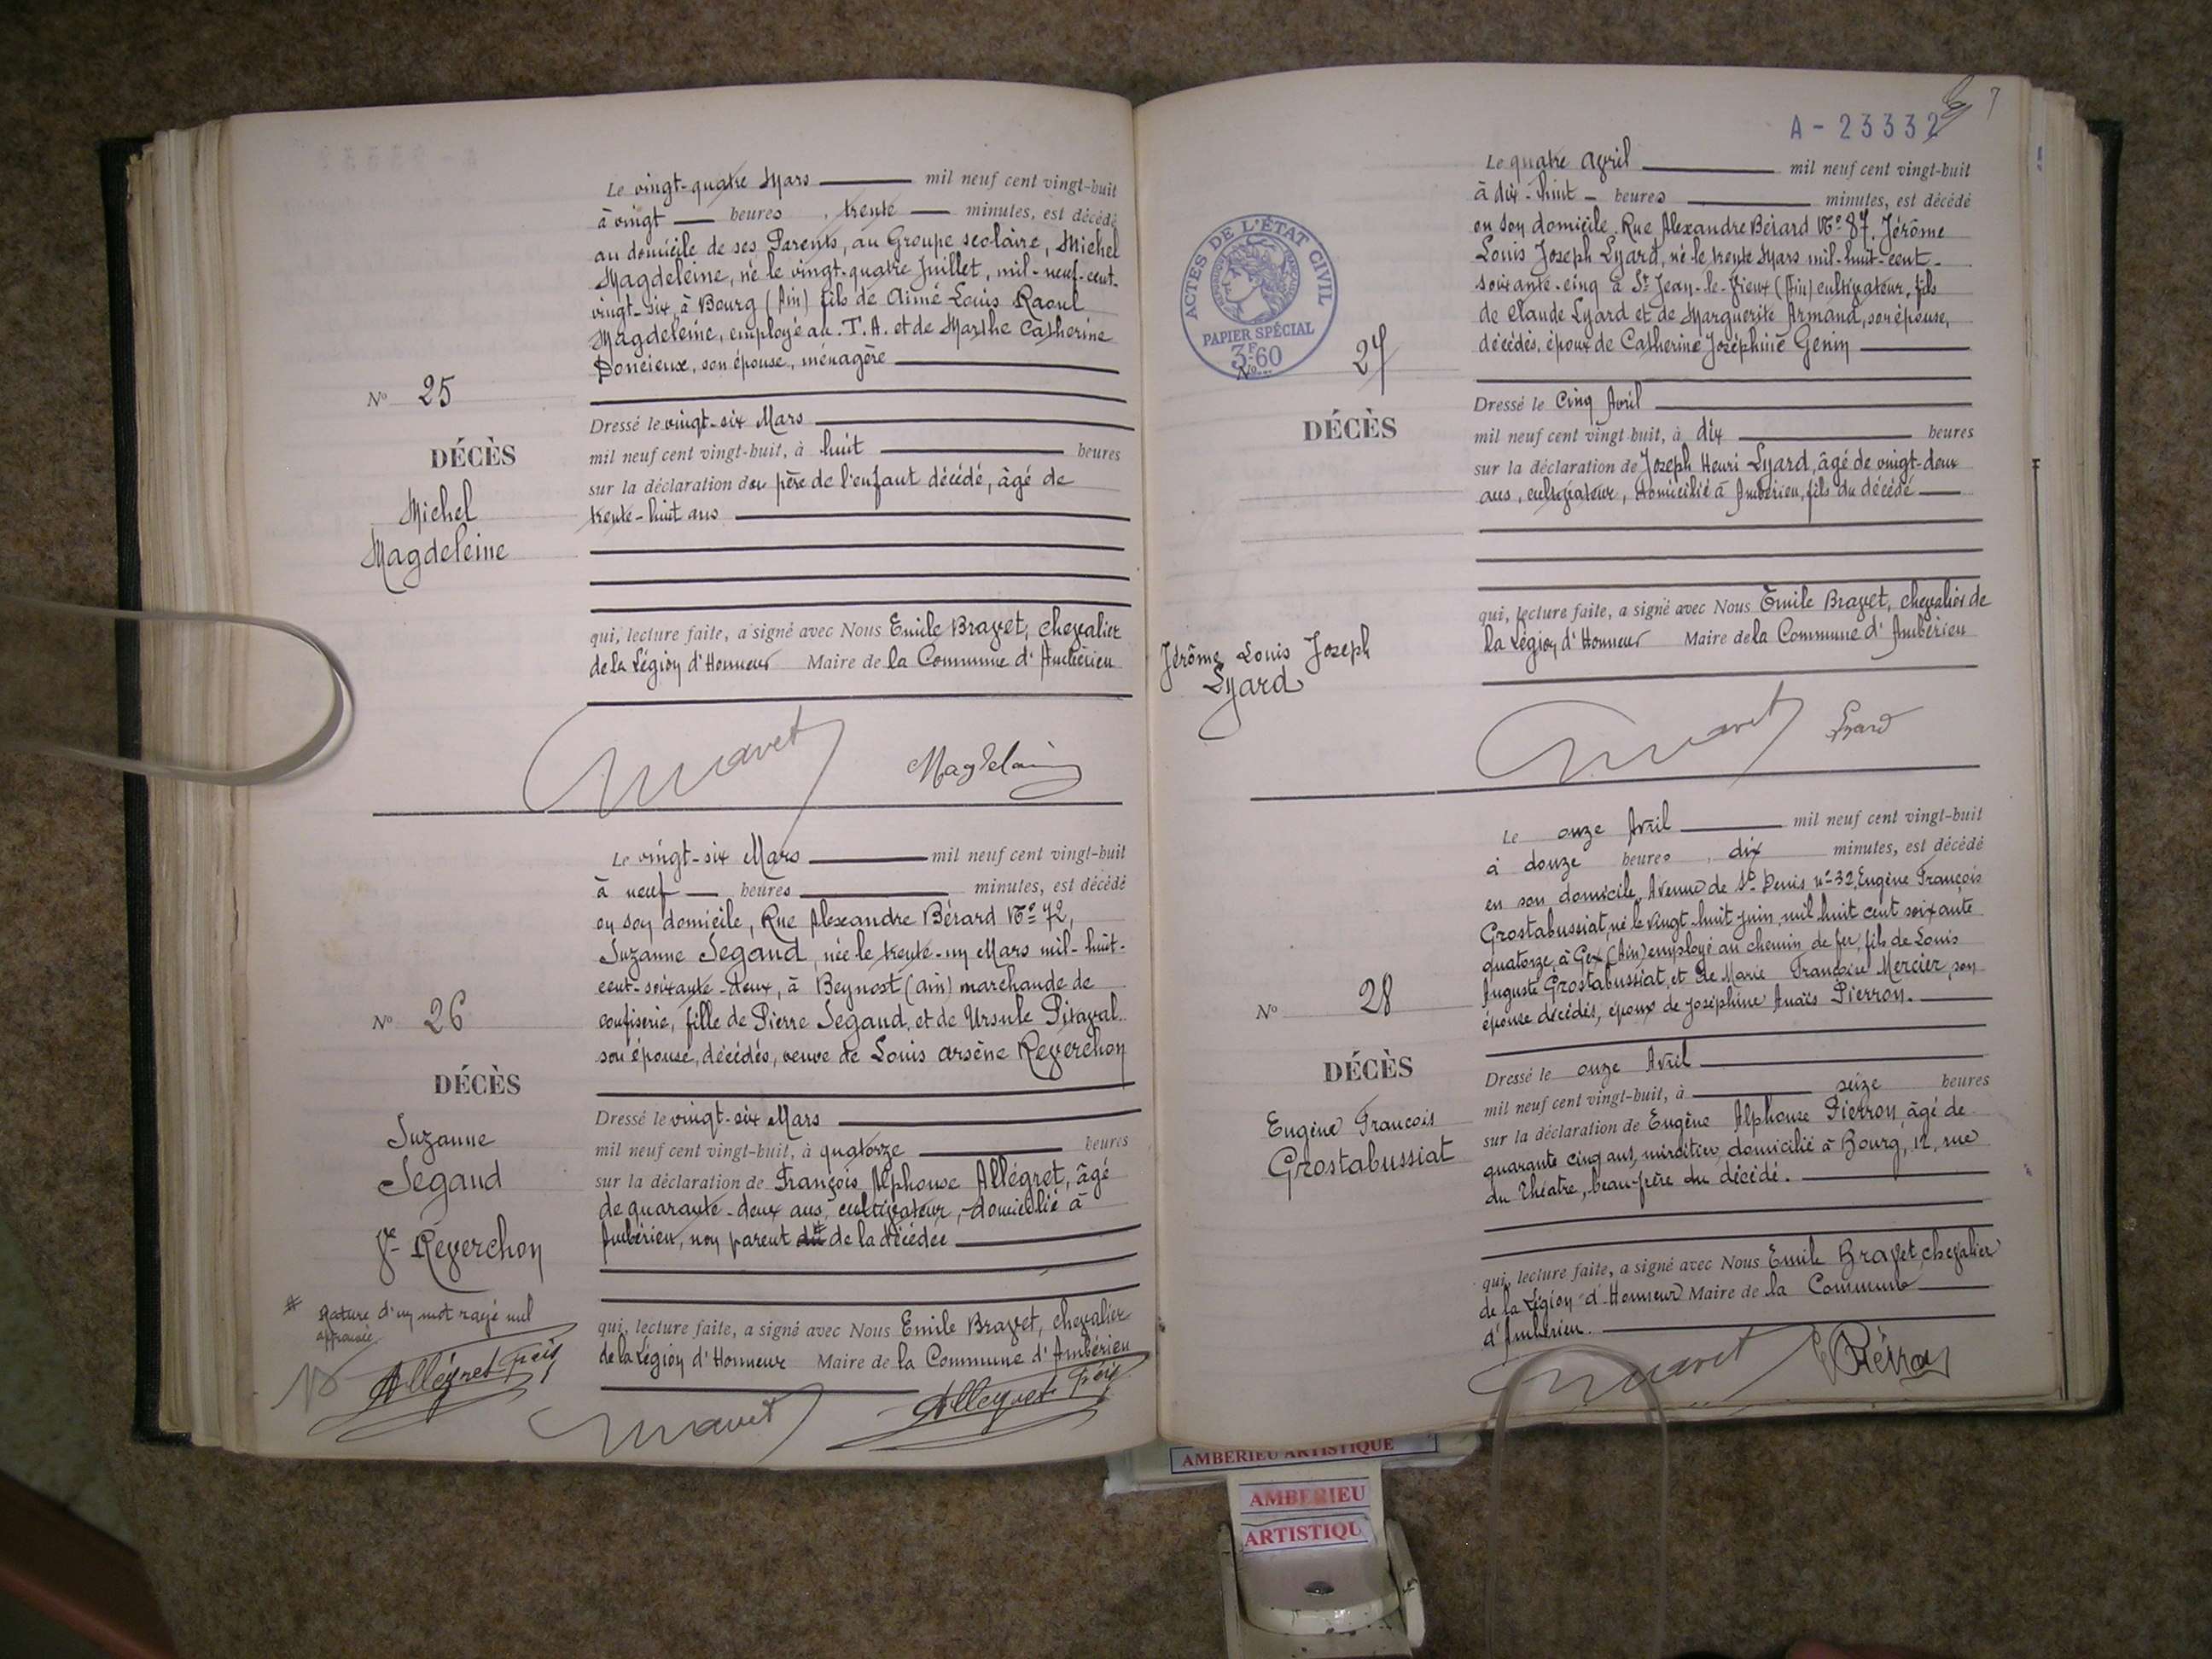 Le vingt-quatre Mars mil neuf cent vingt-huit
à vingt heures, trente minutes, est décédé
au domicile de ses Parents, au Groupe scolaire, Michel
Magdeleine, né le vingt-quatre Juillet, mil-neuf-cent-
vingt-six, à Bourg (Ain) fils de Aimé Louis Raoul
Magdeleine, employé au .T.A. et de Marthe Catherine
Doncieux, son épouse, ménagère
N° 25
DÉCÈS
Michel
Magdeleine
Dressé le vingt-six Mars
mil neuf cent vingt-huit, à huit heures
sur la déclaration du père de l'enfant décédé, âgé de
trente-huit ans
qui, lecture faite, a signé avec Nous Emile Bravet, chevalier
de la Légion d'Honneur Maire de la Commune d'Ambérieu
Bravet Magdeleine
Le vingt-six Mars mil neuf cent vingt-huit
à neuf heures minutes, est décédé
en son domicile, Rue Alexandre Bérard N° 72,
Suzanne Segaud, née le trente-un Mars mil-huit-
cent-soixante-deux, à Beynost (ain) marchande de
confiserie, fille de Pierre Segaud, et de Ursule Pitaval
son épouse, décédés, veuve de Louis arsène Reverchon
N° 26
DÉCÈS
Suzanne
Segaud
Ve Reverchon
Dressé le vingt-six Mars
mil neuf cent vingt-huit, à quatorze heures
sur la déclaration de François Alphonse Allégret, âgé
de quarante-deux ans, cultivateur, domicilié à
Ambérieu, non parent de la décédée
* Rature d'un mot rayé nul
approuvée
Allégret Fçois
qui, lecture faite, a signé avec Nous Emile Bravet, chevalier
de la Légion d'Honneur Maire de la Commune d'Ambérieu
Bravet Allegret Fçois
A-23332
7
Le quatre Avril mil neuf cent vingt-huit
à dix-huit heures minutes, est décédé
en son domicile. Rue Alexandre Bérard N° 87, Jérôme
Louis Joseph Lyard, né le trente Mars mil-huit-cent-
soixante-cinq à St Jean-le-Vieux (Ain) cultivateur, fils
de Claude Lyard et de Marguerite Armand, son épouse,
décédés, époux de Catherine Joséphine Genin
ACTES DE L'ÉTAT CIVIL
RÉPUBLIQUE FRANÇAISE
PAPIER SPÉCIAL
3F60
N° 27
DÉCÈS
Jérôme Louis Joseph
Lyard
Dressé le Cinq Avril
mil neuf cent vingt-huit, à dix heures
sur la déclaration de Joseph Henri Lyard, âgé de vingt-deux
ans, cultivateur, domicilié à Ambérieu, fils du décédé
qui, lecture faite, a signé avec Nous Emile Bravet, chevalier de
la Légion d'Honneur Maire de la Commune d'Ambérieu
Bravet Lyard
Le onze Avril mil neuf cent vingt-huit
à douze heures, dix minutes, est décédé
en son domicile, Avenue de St Denis n° 32, Eugène François
Grostabussiat, né le vingt-huit juin mil huit cent soixante
quatorze, à Gex (Ain) employé au chemin de fer, fils de Louis
Auguste Grostabussiat, et de Marie Françoise Mercier, son
épouse décédés, époux de Joséphine Anaïs Pierron.
N° 28
DÉCÈS
Eugène François
Grostabussiat
Dressé le onze Avril
mil neuf cent vingt-huit, à seize heures
sur la déclaration de Eugène Alphonse Pierron, âgé de
quarante cinq ans, miroitier, domicilié à Bourg, 12, rue
du Théatre, beau-frère du décédé.
qui, lecture faite, a signé avec Nous Emile Bravet, chevalier
de la Légion d'Honneur Maire de la Commune
d'Ambérieu.
Bravet Pierron
AMBERIEU ARTISTIQUE
AMBERIEU
ARTISTIQU